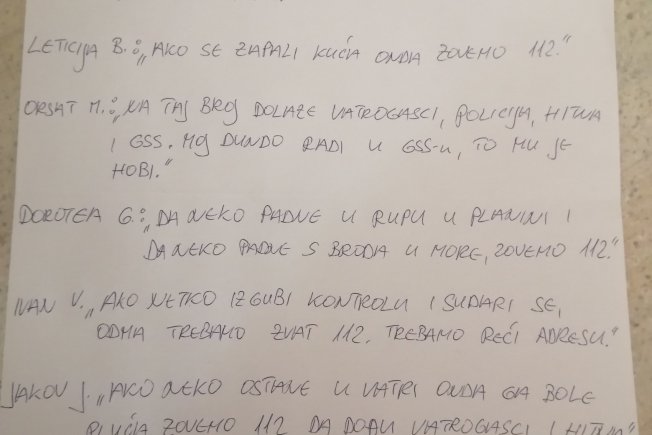 LETICIJA B.: „AKO SE ZAPALI KUĆA ONDA ZOVEMO 112.“
ORSAT M.: „NA TAJ BROJ DOLAZE VATROGASCI, POLICIJA, HITNA
I GSS. MOJ DUNDO RADI U GSS-u, TO MU JE
HOBI.“
DOROTEA G.: „DA NEKO PADNE U RUPU U PLANINI I
DA NEKO PADNE S BRODA U MORE, ZOVEMO 112.“
IVAN V. „AKO NETKO IZGUBI KONTROLU I SUDARI SE,
ODMA TREBAMO ZVAT 112. TREBAMO REĆI ADRESU.“
JAKOV J. „AKO NEKO OSTANE U VATRI ONDA GA BOLE
PLUĆA ZOVEMO 112 DA DOĐU VATROGASCI I HITNA“